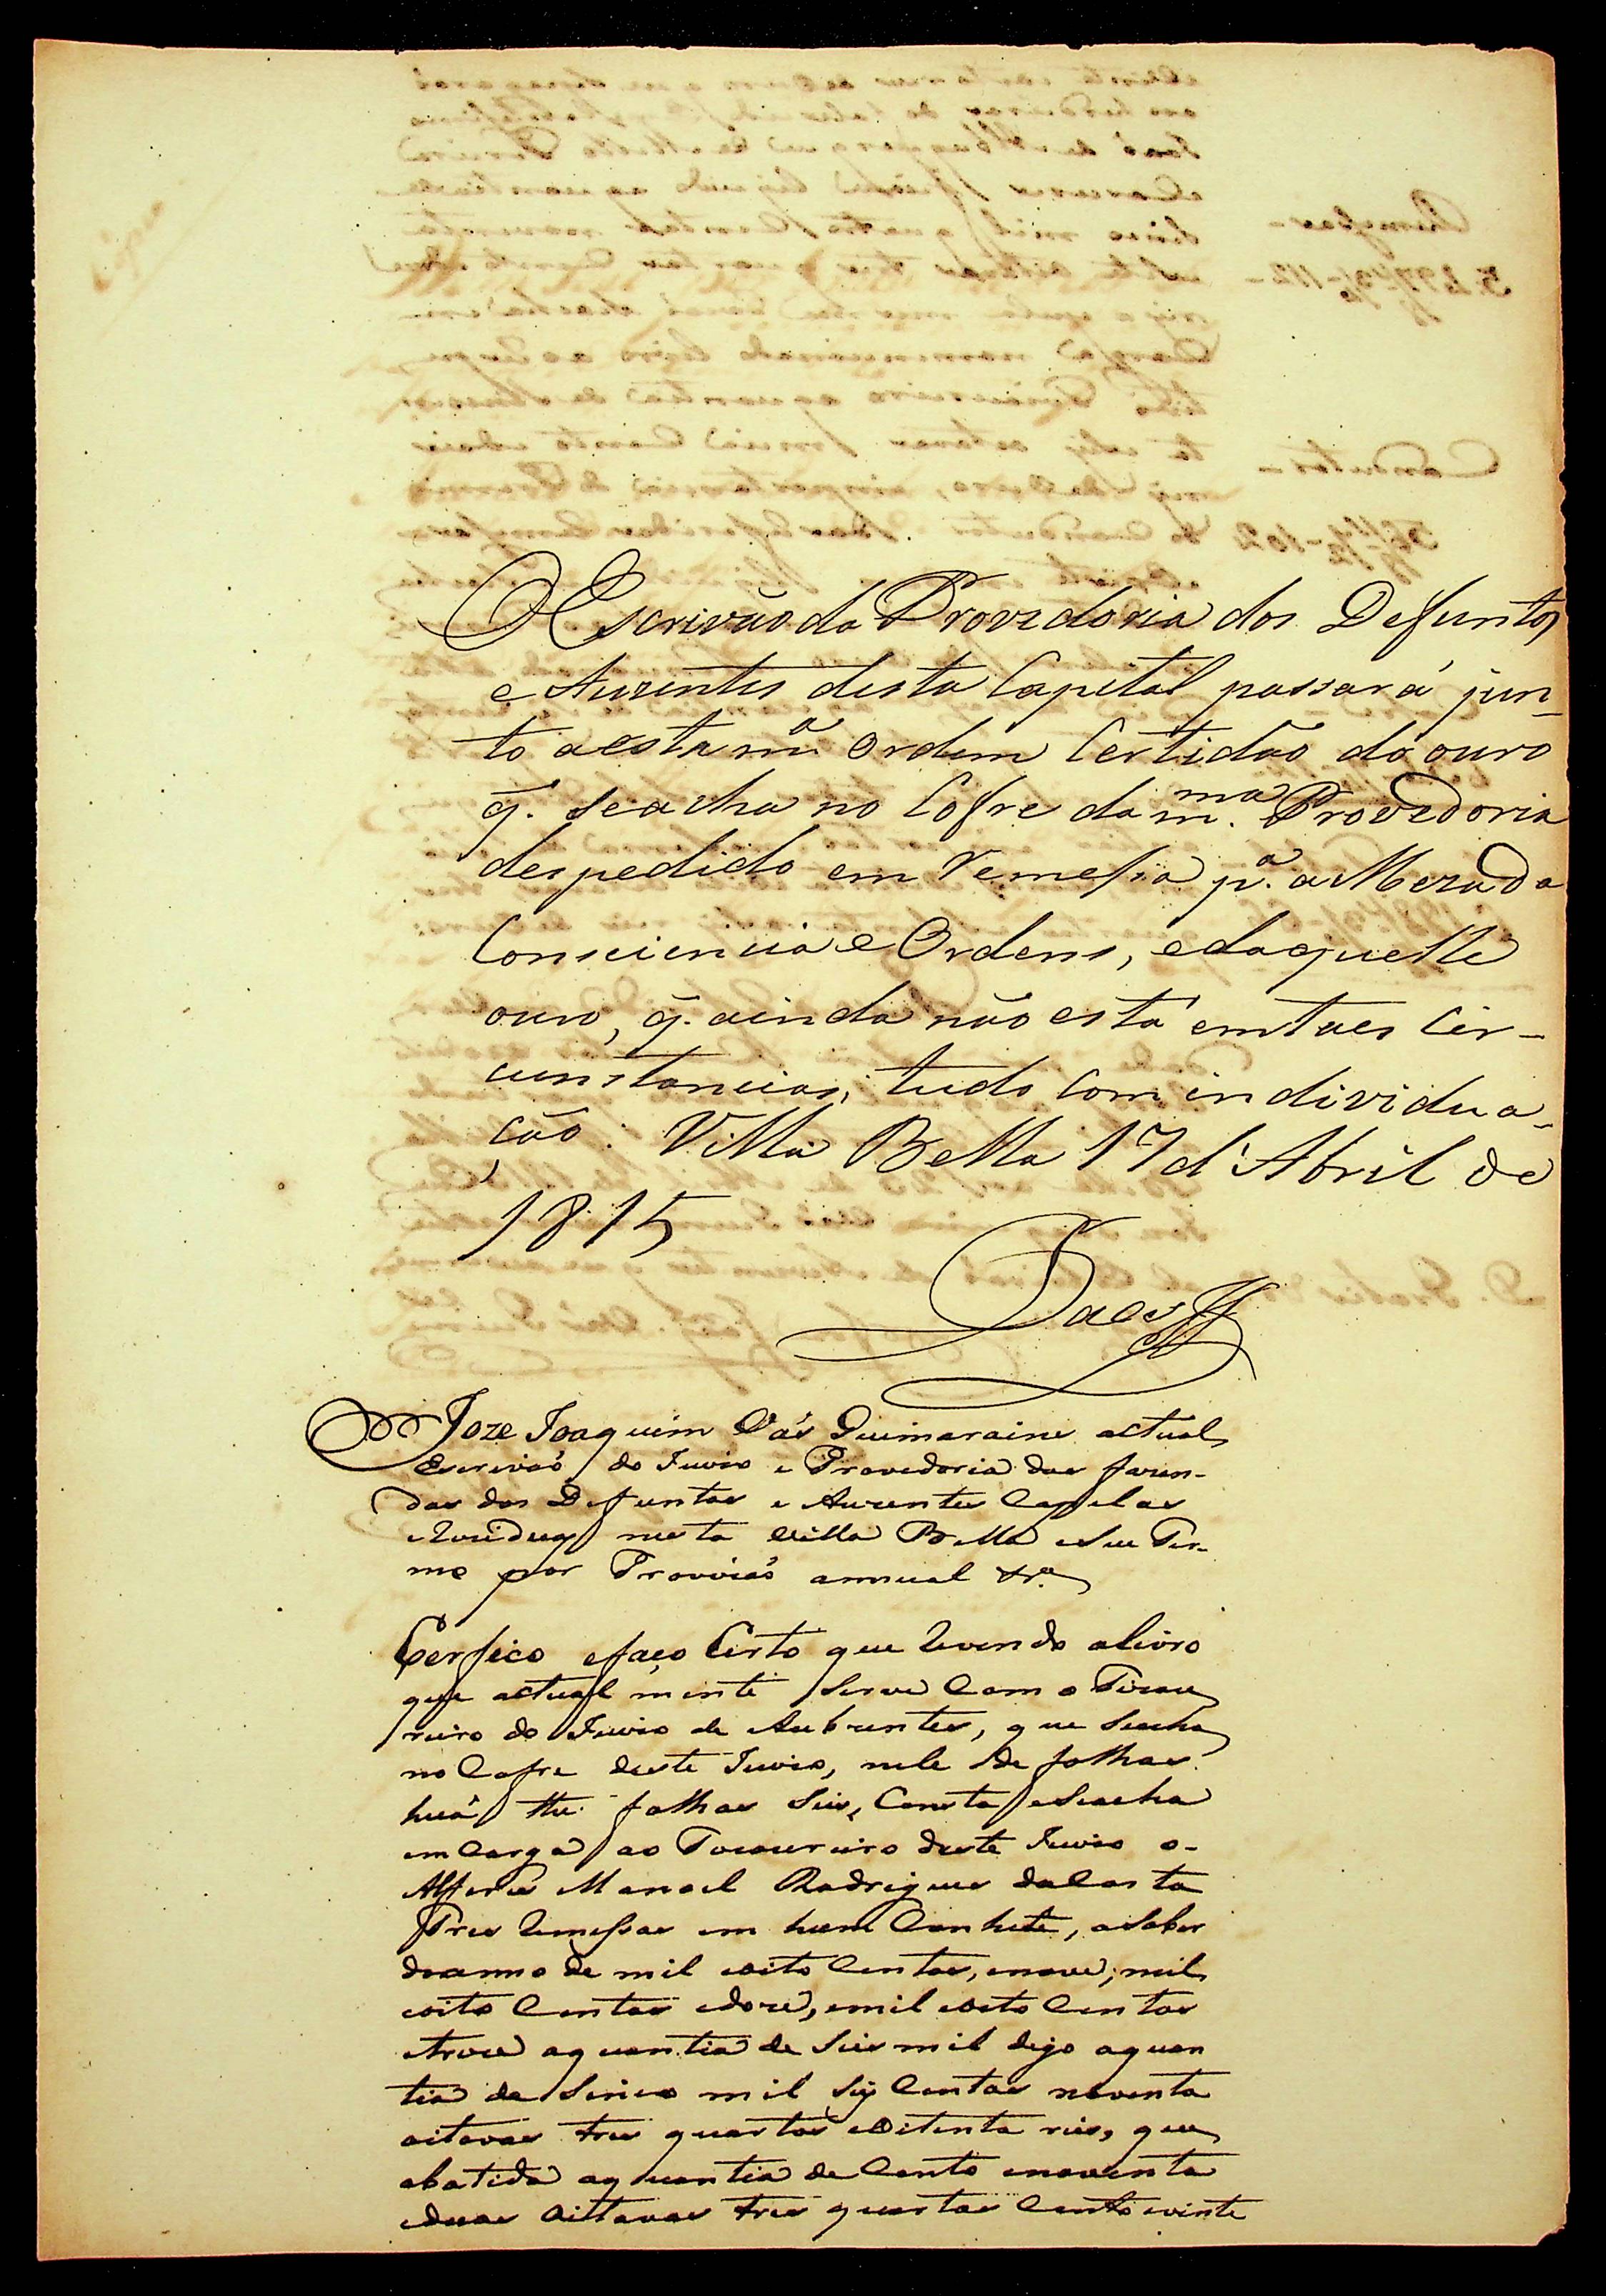 O Escrivão da Provedoria dos Defuntos
e Auzentes desta Capital passará jun_
to aesta mª ordem Certidão do ouro
q̃. seacha no Cofre da m.ma Provedoria
despedido em Remessa pª. a Meza da
Consciencia e Ordens, edaquelle
ouro, q̃. ainda não está em taes Cir_
cunstancias; tudo Com individua_
ção: Villa Bella 17 d'Abril de
1815
Paes
Joze Joaquim Vás Guimarains actual
Escrivaõ do Juizo e Provedoria das fazen-
das dos Defuntos e Auzentes Capelas
e Reziduos nesta Villa Bella e Seu Ter-
mo por Provizaõ annual &ª.
Certefico efaço Certo que Revendo olivro
que actual mente Serve Com o Tizou
reiro do Juizo de Auzentes, que Seacha
no Cofre deste Juizo, nele de folhas
huá the folhas Seis, Consta eSeacha
em Carga ao Tizoureiro deste Juizo o-
Alferes Manoel Rodrigues da Costa
Tres Remessas em hum Canhete, aSaber
doanno de mil eoito Centos, enove; mil
eoito Centos edoze, emil eoito Centos
etreze aquantia de Seis mil digo aquan
tia de Sinco mil Seis Centas noventa
oitavas tres quartos eOitenta reis, que
abatida aquantia de Cento enoventa
eduas Oitavas tres quartos Cento evinte